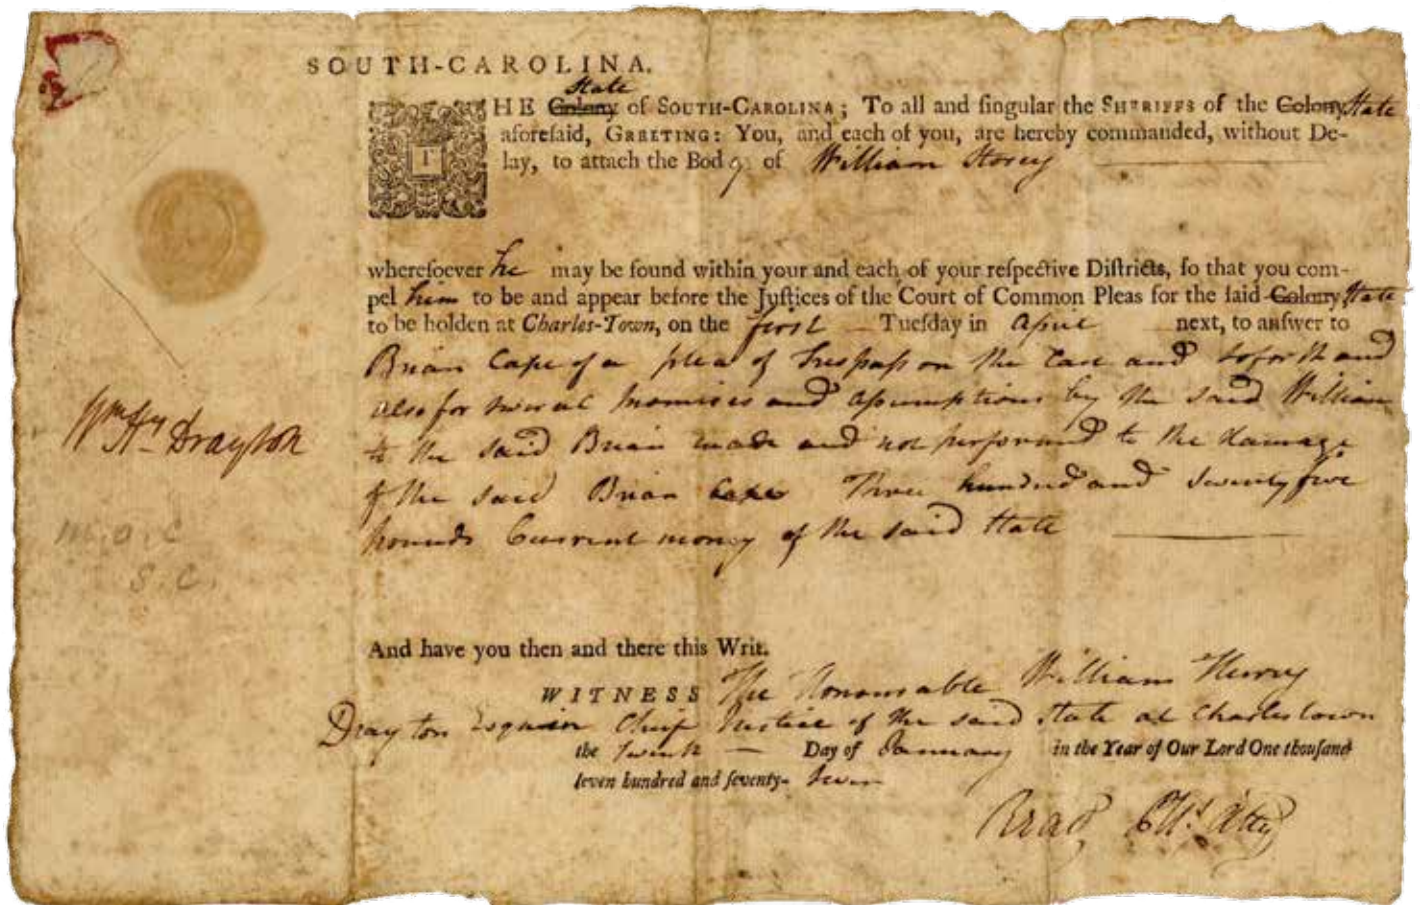 SOUTH-CAROLINA.
State
THE Colony of SOUTH-CAROLINA; To all and ſingular the SHERIFFS of the Colony State
aforeſaid, GREETING: You, and each of you, are hereby commanded, without De-
lay, to attach the Body of William Storey
whereſoever he may be found within your and each of your reſpective Diſtricts, ſo that you com-
pel him to be and appear before the Juſtices of the Court of Common Pleas for the ſaid Colony State
to be holden at Charles-Town, on the first Tueſday in April next, to anſwer to
Brian Cape of a plea of Trespass on the Case and soforth and
also for several promises and assumptions by the said William
to the said Brian made and not performed to the damage
of the said Brian Cape Three hundred and seventy five
pounds Current money of the said State
Wm Hy Drayton
M.O.C
S.C.
And have you then and there this Writ.
WITNESS The Honourable William Henry
Drayton Esquire Chief Justice of the said State at Charlestown
the Day of January in the Year of Our Lord One thouſand
ſeven hundred and ſeventy- Seven
Read Atty